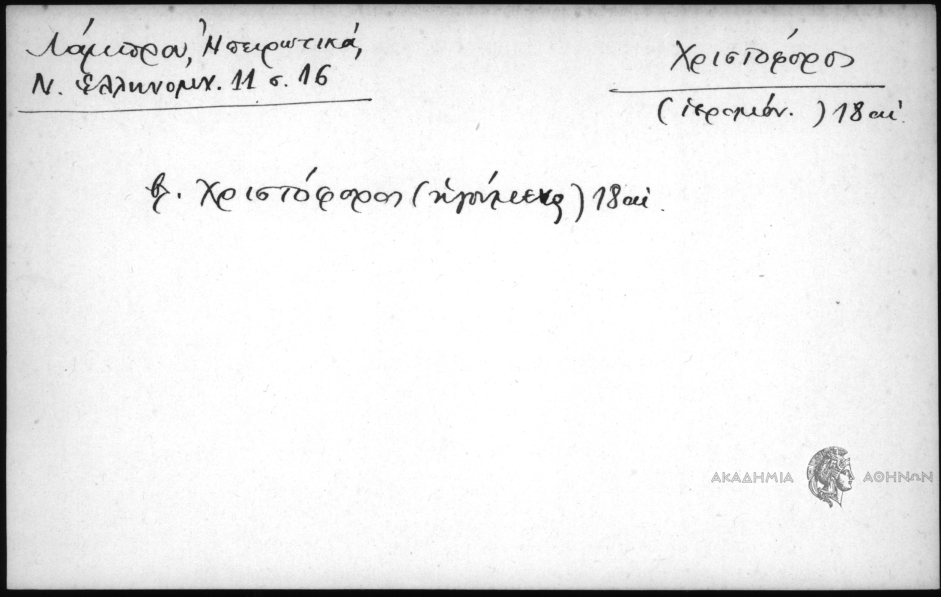 Λάμπρου, Ἠπειρωτικά,
Ν. Ἑλληνομν. 11 σ. 16
Χριστόφορος
(ἱερομόν.) 18 αἰ.
βλ. Χριστόφορος (ἡγούμενος) 18 αἰ.
ΑΚΑΔΗΜΙΑ ΑΘΗΝΩΝ